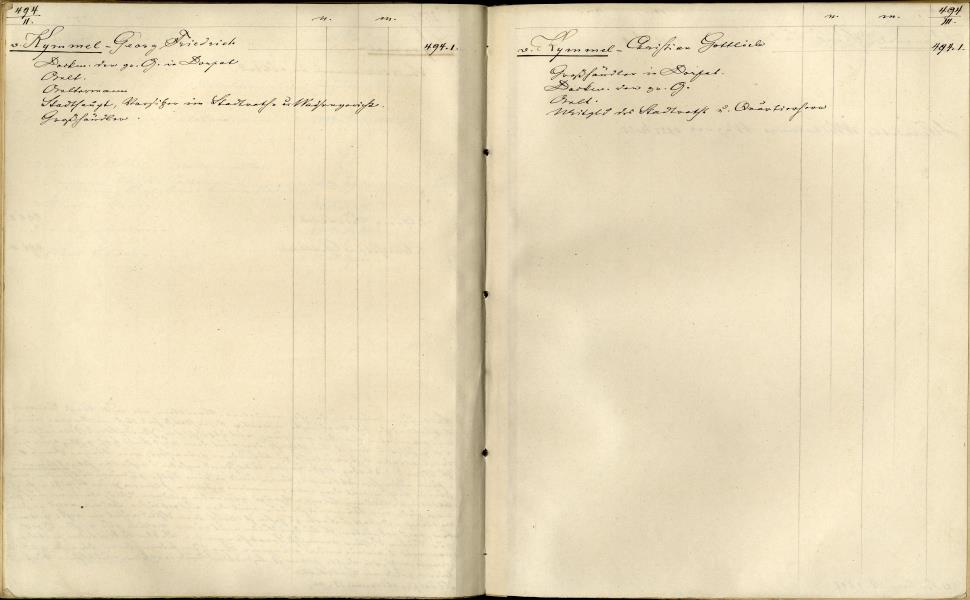 494
II.
n. m.
v. Kymmel - Georg Friedrich 494.1.
Dockm. der gr. G. in Dorpat
Aelt.
Aeltermann
Stadthaupt, Vorsitzer im Stadtrathe u. Waisengerichte.
Großhändler.
494
III.
n. m.
v. Kymmel - Christian Gottlieb 494.1.
Großhändler in Dorpat.
Dockm. der gr. G.
Aelt.
Mitgld des Stadtraths u. Quartierherr